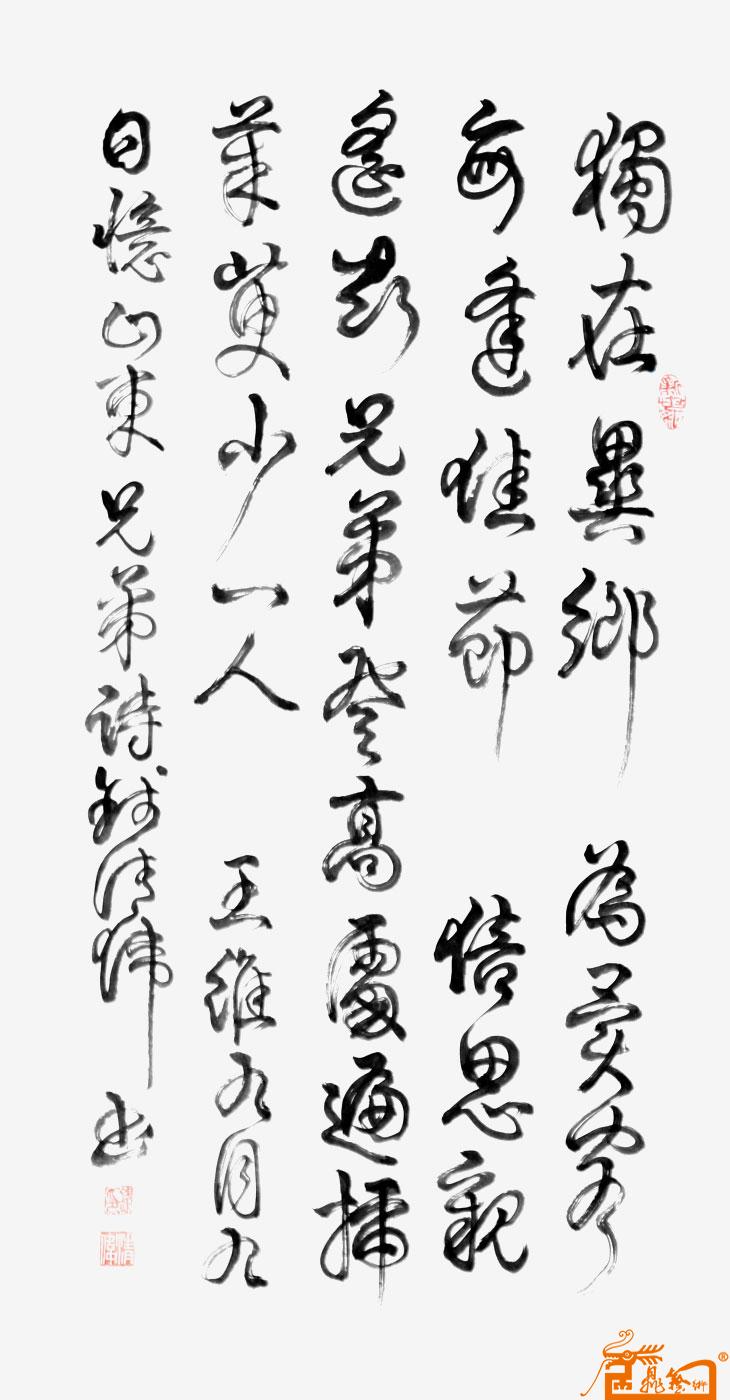 獨在異鄉為異客
每逢佳節倍思親
遙知兄弟登高處遍插
茱萸少一人王維九月九
日憶山東兄弟詩錢清偉書
清偉